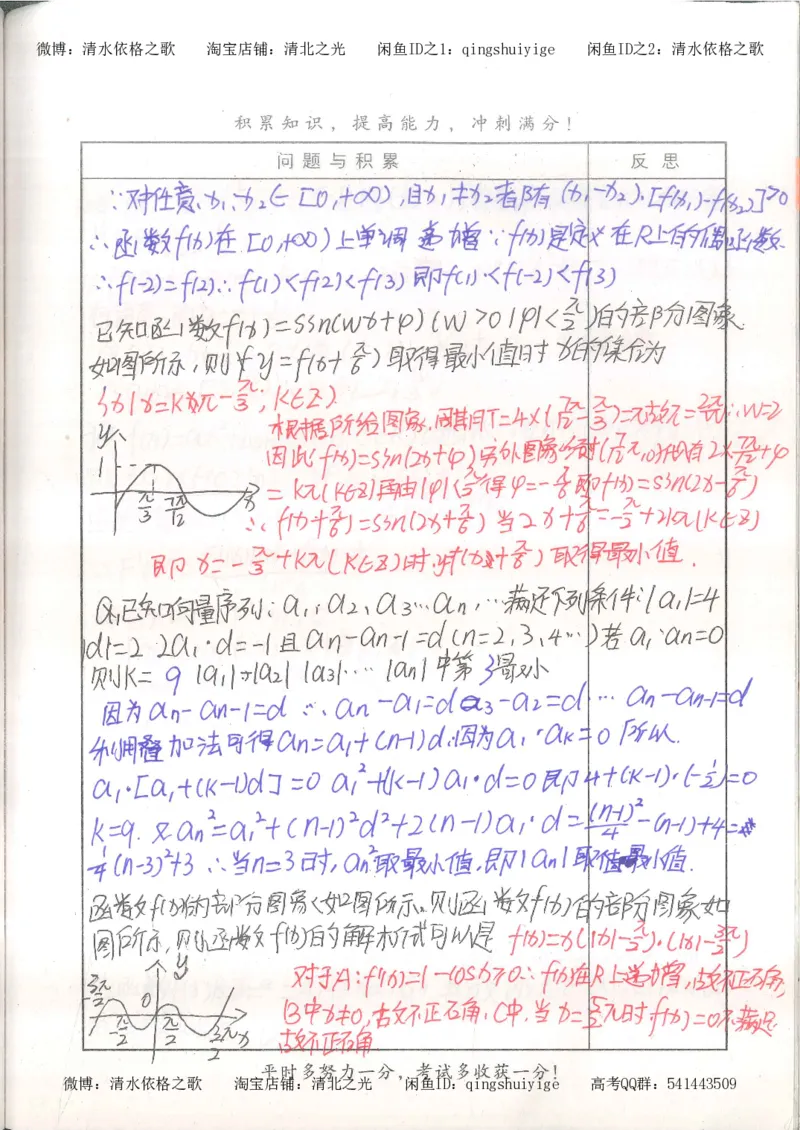 微博：清水依格之歌 淘宝店铺：清北之光 闲鱼ID之1：qingshuiyige 闲鱼ID之2：清水依格之歌
积累知识，提高能力，冲刺满分！
问题与积累 反思
∵对任意x₁、x₂∈[0,+∞)，且x₁≠x₂都有(x₁-x₂)·[f(x₁)-f(x₂)]>0
∴函数f(x)在[0,+∞)上单调递增∵f(x)是定义在R上的偶函数.
∴f(-2)=f(2)∴f(1)<f(2)<f(3)即f(1)<f(-2)<f(3)
已知函数f(x)=sin(wx+φ)(w>0|φ|<π/2)的部分图象
如图所示，则y=f(x+π/6)取得最小值时x的集合为
{x|x=kπ-π/3，k∈Z}
根据所给图象，周期T=4×(7π/12-π/3)=π故π=2π/w∴w=2
因此f(x)=sin(2x+φ)另外图象经过(7/12π,0)代入有2×7π/12+φ
=kπ(k∈Z)再由|φ|<π/2得φ=-π/6即f(x)=sin(2x-π/6)
∴f(x+π/6)=sin(2x+π/6)当2x+π/6=-π/2+2kπ(k∈Z)
即x=-π/3+kπ(k∈Z)时y=f(x+π/6)取得最小值.
y 1 π/3 7π/12 x
Q,已知向量序列：a₁，a₂、a₃…an，…满足下列条件：|a₁|=4
|d|=2 2a₁·d=-1且an-an-1=d(n=2,3,4…)若a₁·an=0
则k=9 |a₁|，|a₂| |a₃|…|an|中第3最小
因为an-an-1=d∴an-a₁=d a₃-a₂=d…an-an-1=d
利用叠加法可得an=a₁+(n-1)d∴因为a₁·ak=0所以
a₁·[a₁+(k-1)d]=0 a₁²+(k-1)a₁·d=0即4+(k-1)·(-1/2)=0
k=9.又an²=a₁²+(n-1)²d²+2(n-1)a₁·d=(n-1)²/4-(n-1)+4=
1/4(n-3)²+3∴当n=3时，an²取最小值，即|an|取最小值.
函数f(x)的部分图象如图所示.则函数f(x)的部分图象如
图所示，则函数f(x)的解析式可以是f(x)=x(|x|-π/2)·(|x|-3π/2)
对于A：f'(x)=1-cosx≥0∴f(x)在R上递增，故不正确，
B中x≠0，故不正确，C中，当x=5/2π时f(x)=0不满足
故不正确
y 0 3π/2 π/2 π/2 3/2π x
平时多努力一分，考试多收获一分！
微博：清水依格之歌 淘宝店铺：清北之光 闲鱼ID之1：qingshuiyige 高考QQ群：541443509